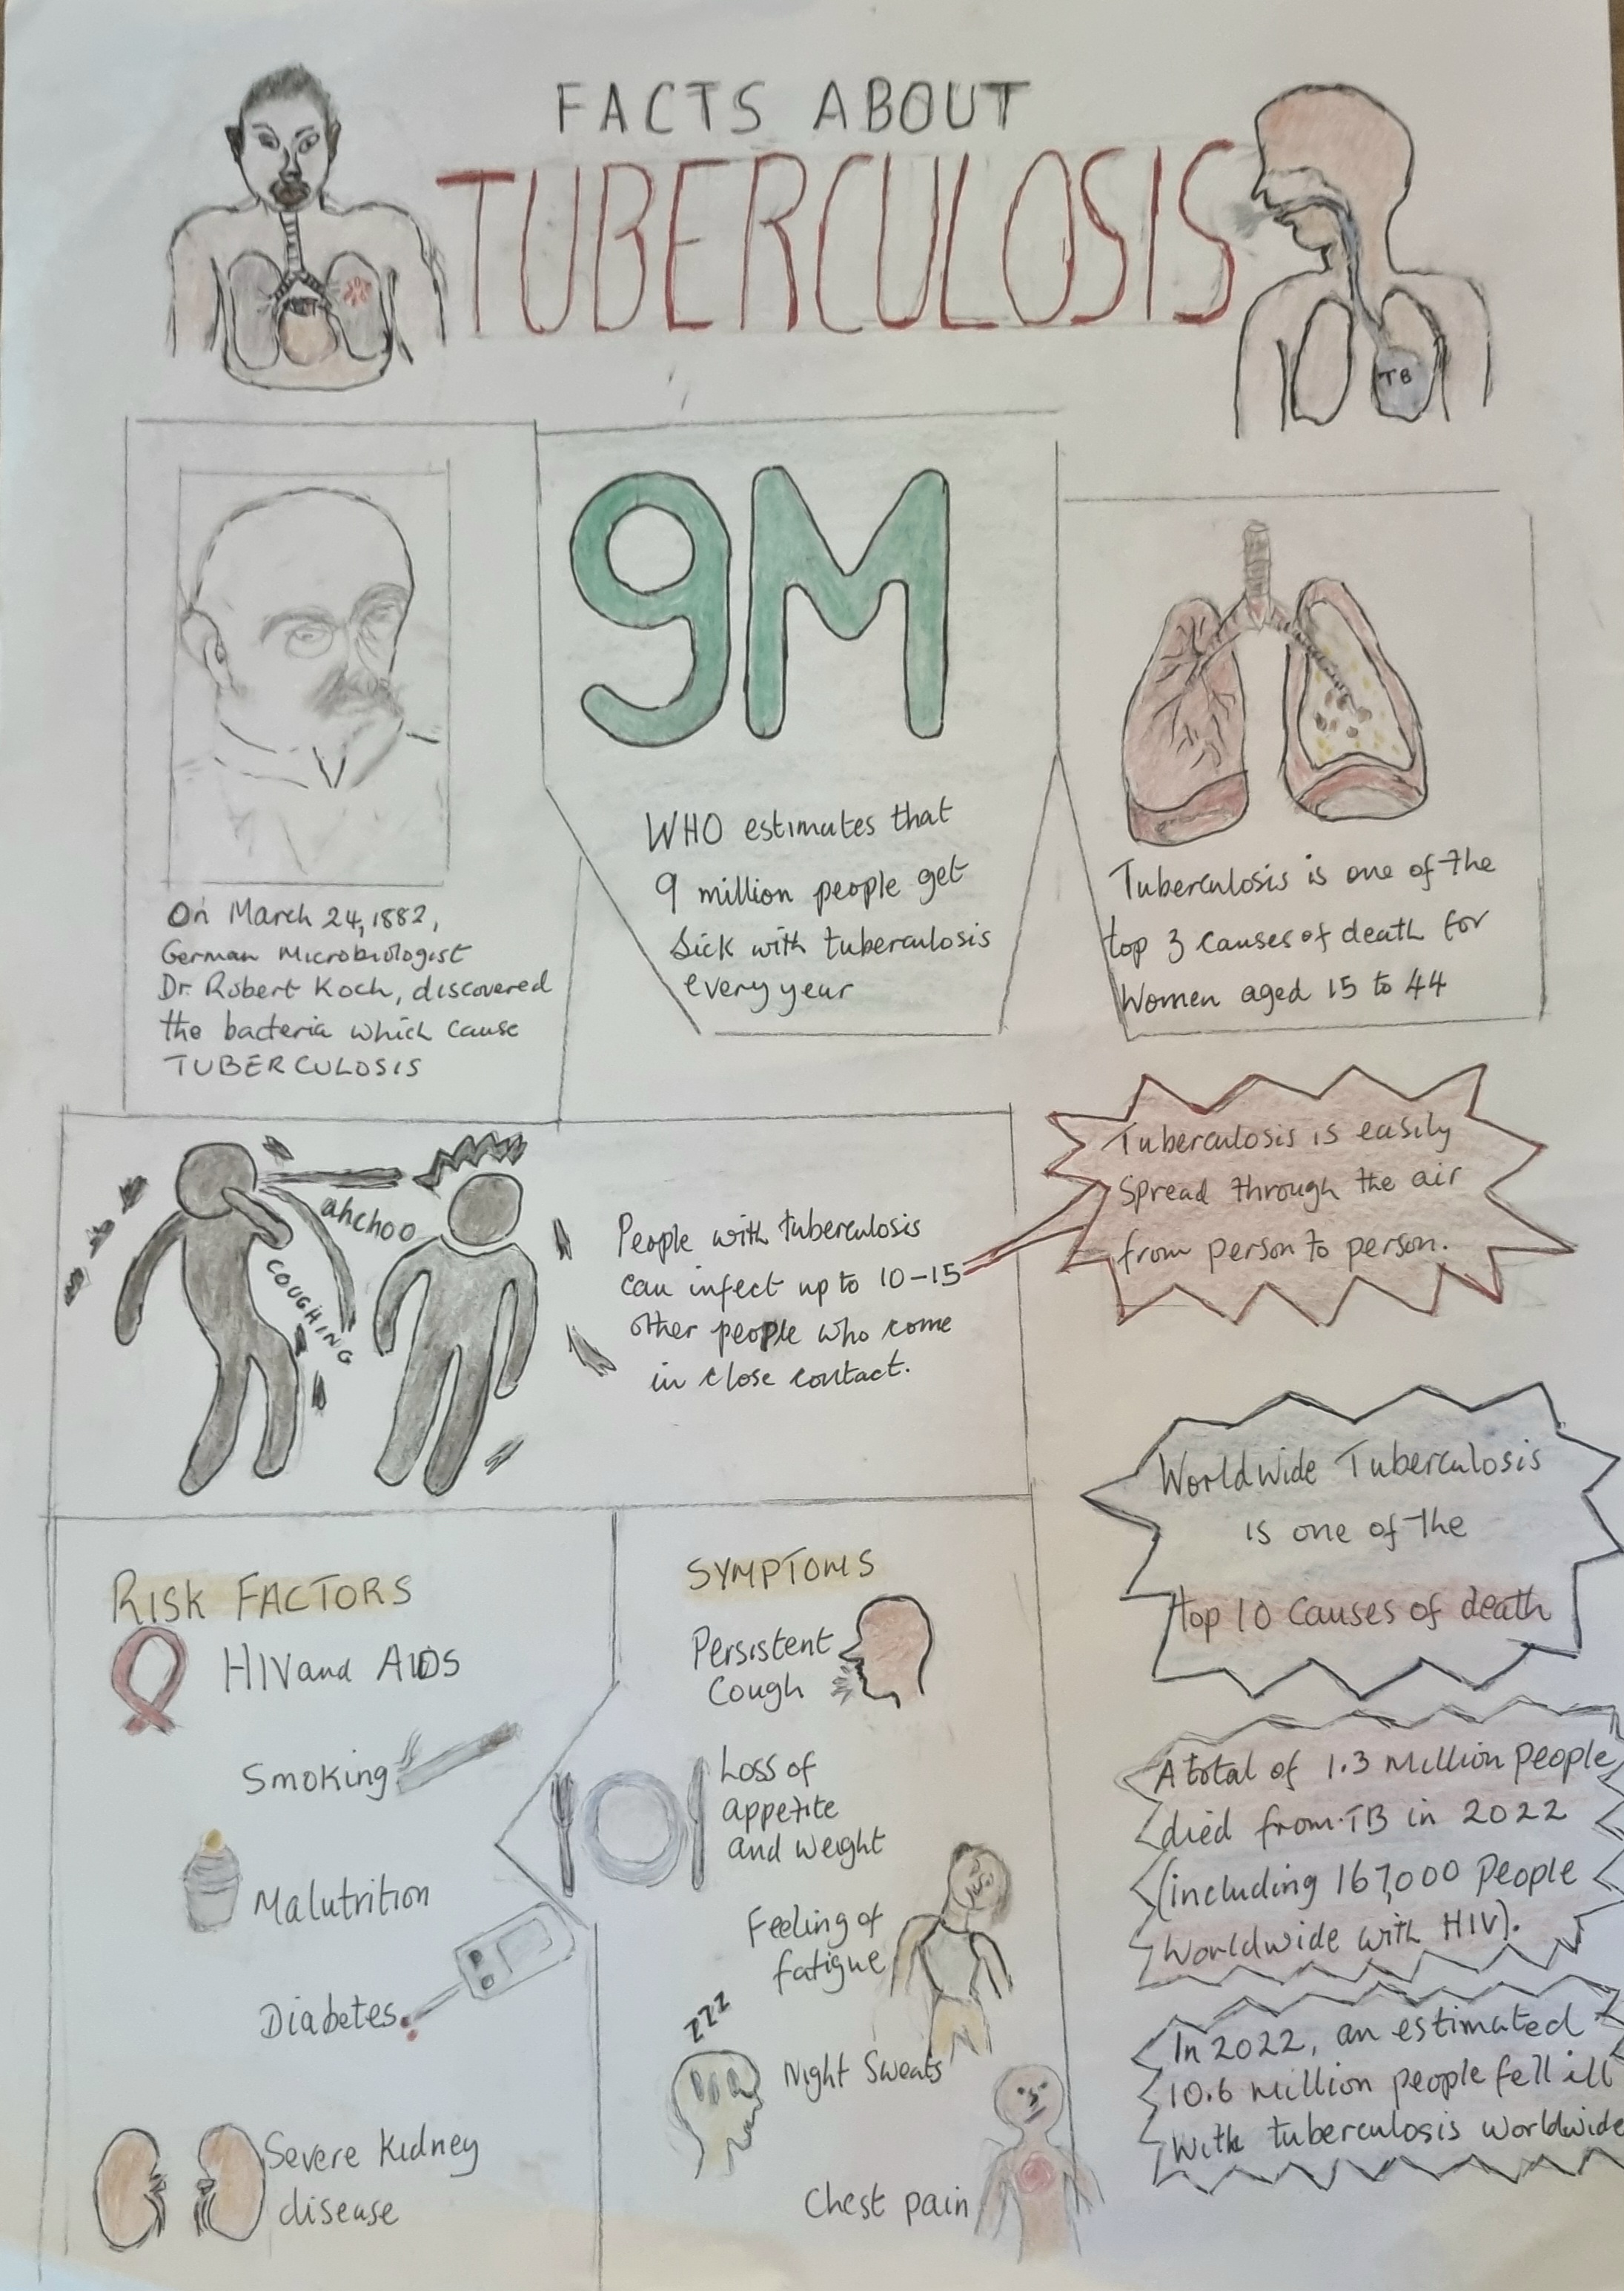 FACTS ABOUT
TUBERCULOSIS
TB
9M
On March 24, 1882,
German Microbiologist
Dr. Robert Koch, discovered
the bacteria which cause
TUBERCULOSIS
WHO estimates that
9 million people get
Sick with tuberculosis
every year
Tuberculosis is one of the
top 3 causes of death for
Women aged 15 to 44
ahchoo
COUGHING
People with tuberculosis
can infect up to 10-15
other people who come
in close contact.
Tuberculosis is easily
Spread through the air
from person to person.
Worldwide Tuberculosis
is one of the
top 10 causes of death
RISK FACTORS
HIV and AIDS
Smoking
Malutrition
Diabetes
Severe Kidney
disease
SYMPTOMS
Persistent
Cough
Loss of
appetite
and weight
Feeling of
fatigue
zzz
Night Sweats
Chest pain
A total of 1.3 Million people
died from TB in 2022
(including 167,000 People
worldwide with HIV).
In 2022, an estimated
10.6 million people fell ill
with tuberculosis worldwide